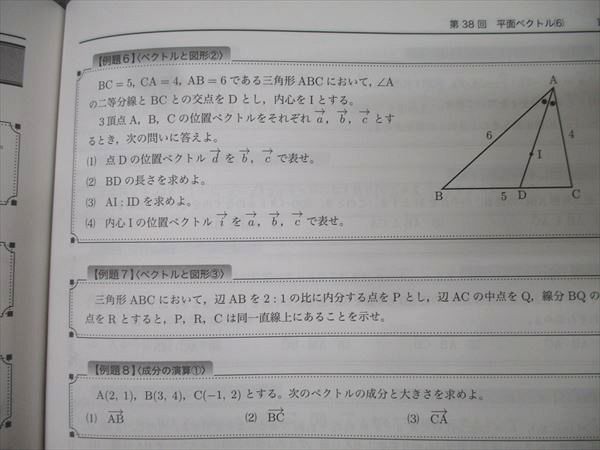 第38回 平面ベクトル(6)
【例題6】〈ベクトルと図形②〉
BC=5, CA=4, AB=6である三角形ABCにおいて, ∠A
の二等分線とBCとの交点をDとし, 内心をIとする。
3頂点A, B, Cの位置ベクトルをそれぞれ a→, b→, c→ とす
るとき, 次の問いに答えよ。
(1) 点Dの位置ベクトル d→ を b→, c→ で表せ。
(2) BDの長さを求めよ。
(3) AI:IDを求めよ。
(4) 内心Iの位置ベクトル i→ を a→, b→, c→ で表せ。
A
6
4
I
B
5
D
C
【例題7】〈ベクトルと図形③〉
三角形ABCにおいて, 辺ABを2:1の比に内分する点をPとし, 辺ACの中点をQ, 線分BQの
点をRとすると, P, R, Cは同一直線上にあることを示せ。
【例題8】〈成分の演算①〉
A(2, 1), B(3, 4), C(-1, 2)とする。次のベクトルの成分と大きさを求めよ。
(1) AB→ (2) BC→ (3) CA→